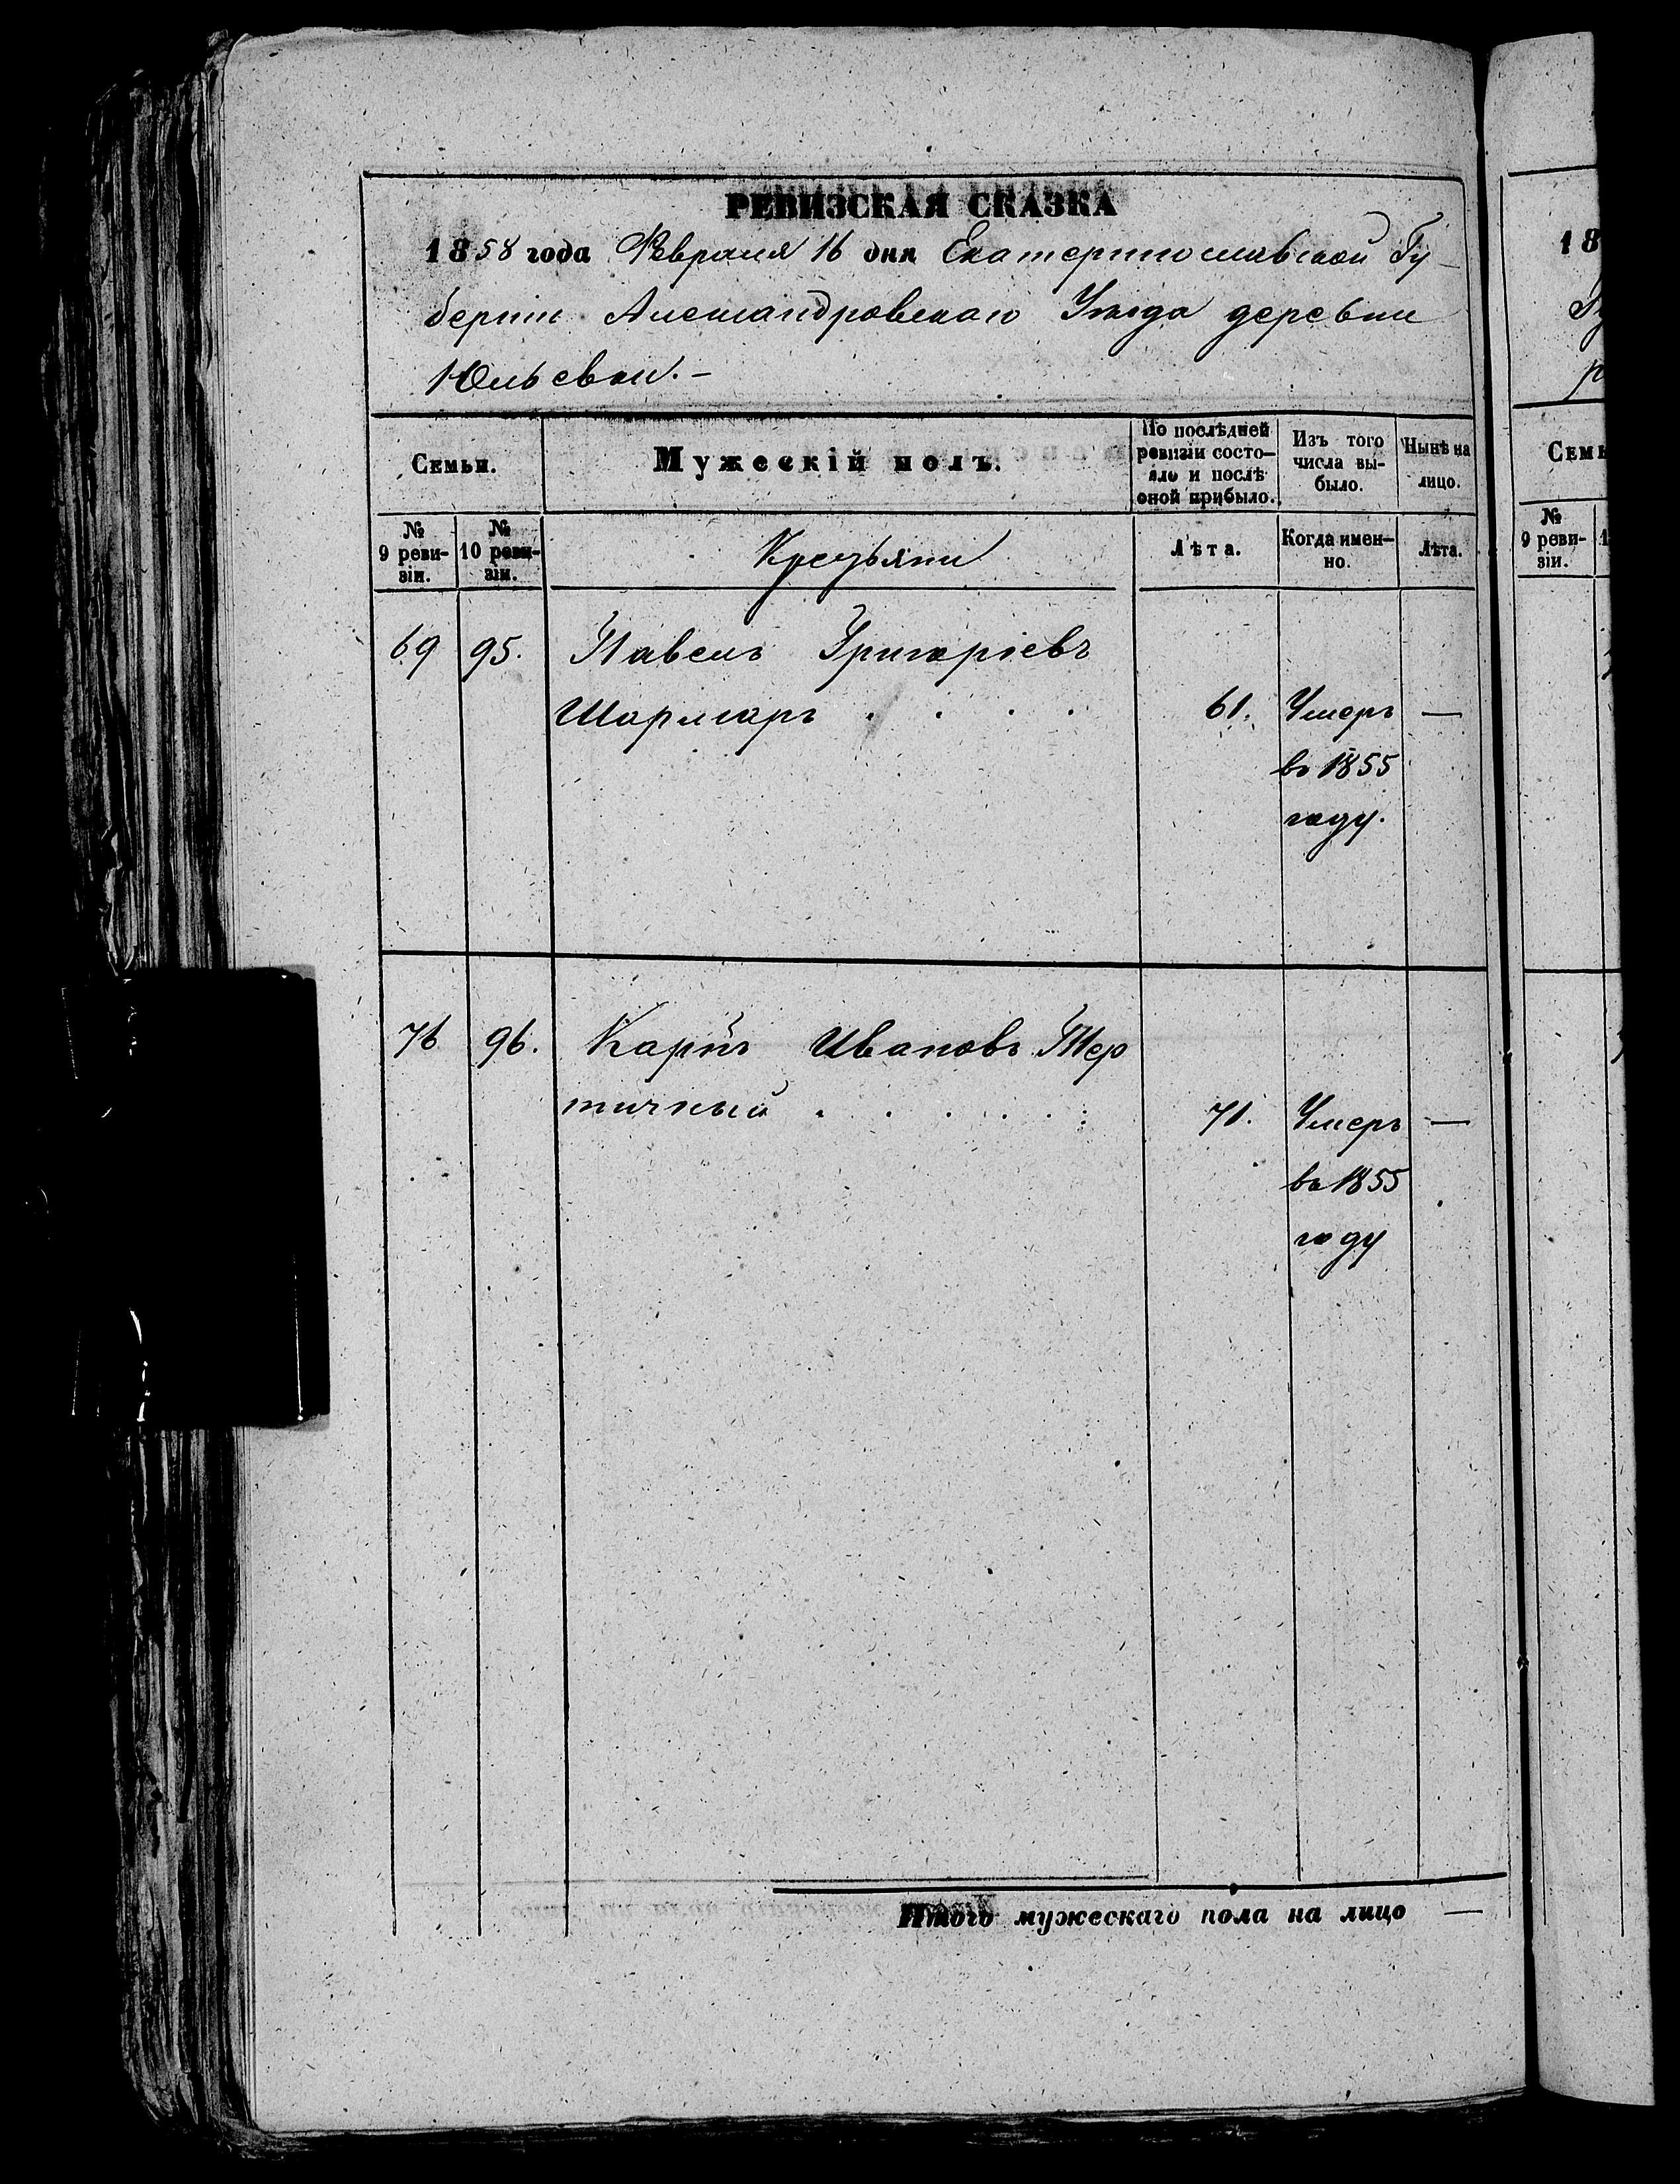 РЕВИЗСКАЯ СКАЗКА
1858 года Февраля 16 дня Екатеринославской Гу-
берніи Александровскаго Уѣзда деревни
Юльевки.-
Семьи.
Мужескій полъ.
По послѣдней
ревизіи состо-
яло и послѣ
оной прибыло.
Изъ того
числа вы-
было.
Нынѣ на
лицо.
№
9 реви-
зіи.
№
10 реви-
зіи.
Крестьяни
Лѣта.
Когда имен-
но.
Лѣта.
69 95. Павелъ Григоріевъ
Шармаръ . . . . 61. Умеръ —
въ 1855
году.
76 96. Карпъ Ивановъ Тер
тичный . . . . . : 71. Умеръ —
въ 1855
году
Итого мужескаго пола на лицо —
18
Семь
№
9 реви-
зіи.
1